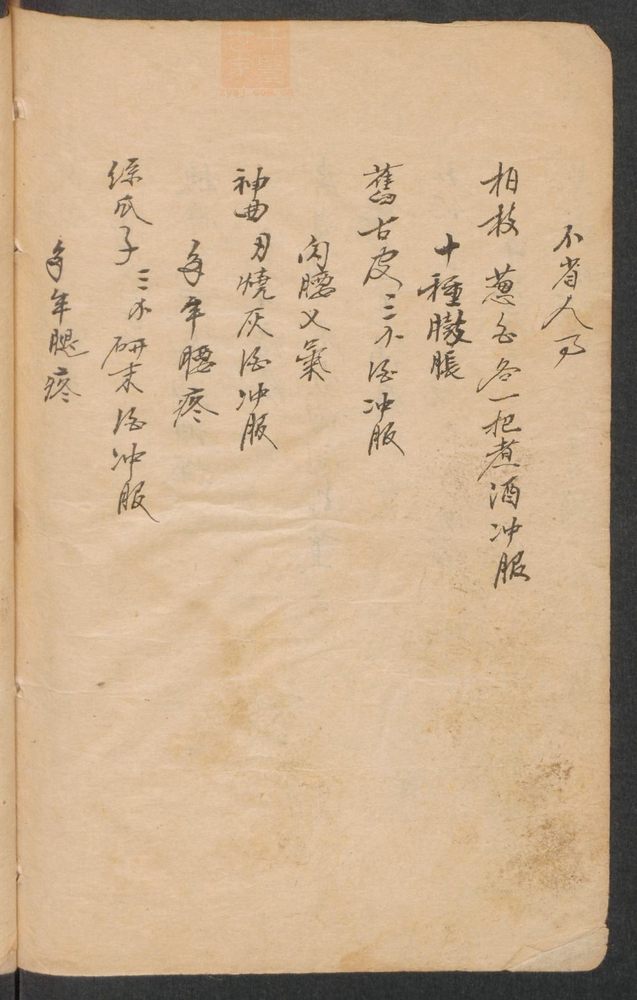 不省人事
柏枝 葱白各一把煮酒冲服
十種臌脹
舊古皮三个 酒冲服
閃腰义氣
神曲 燒灰酒冲服
多年腰疼
三个研末酒冲服
多年腿疼